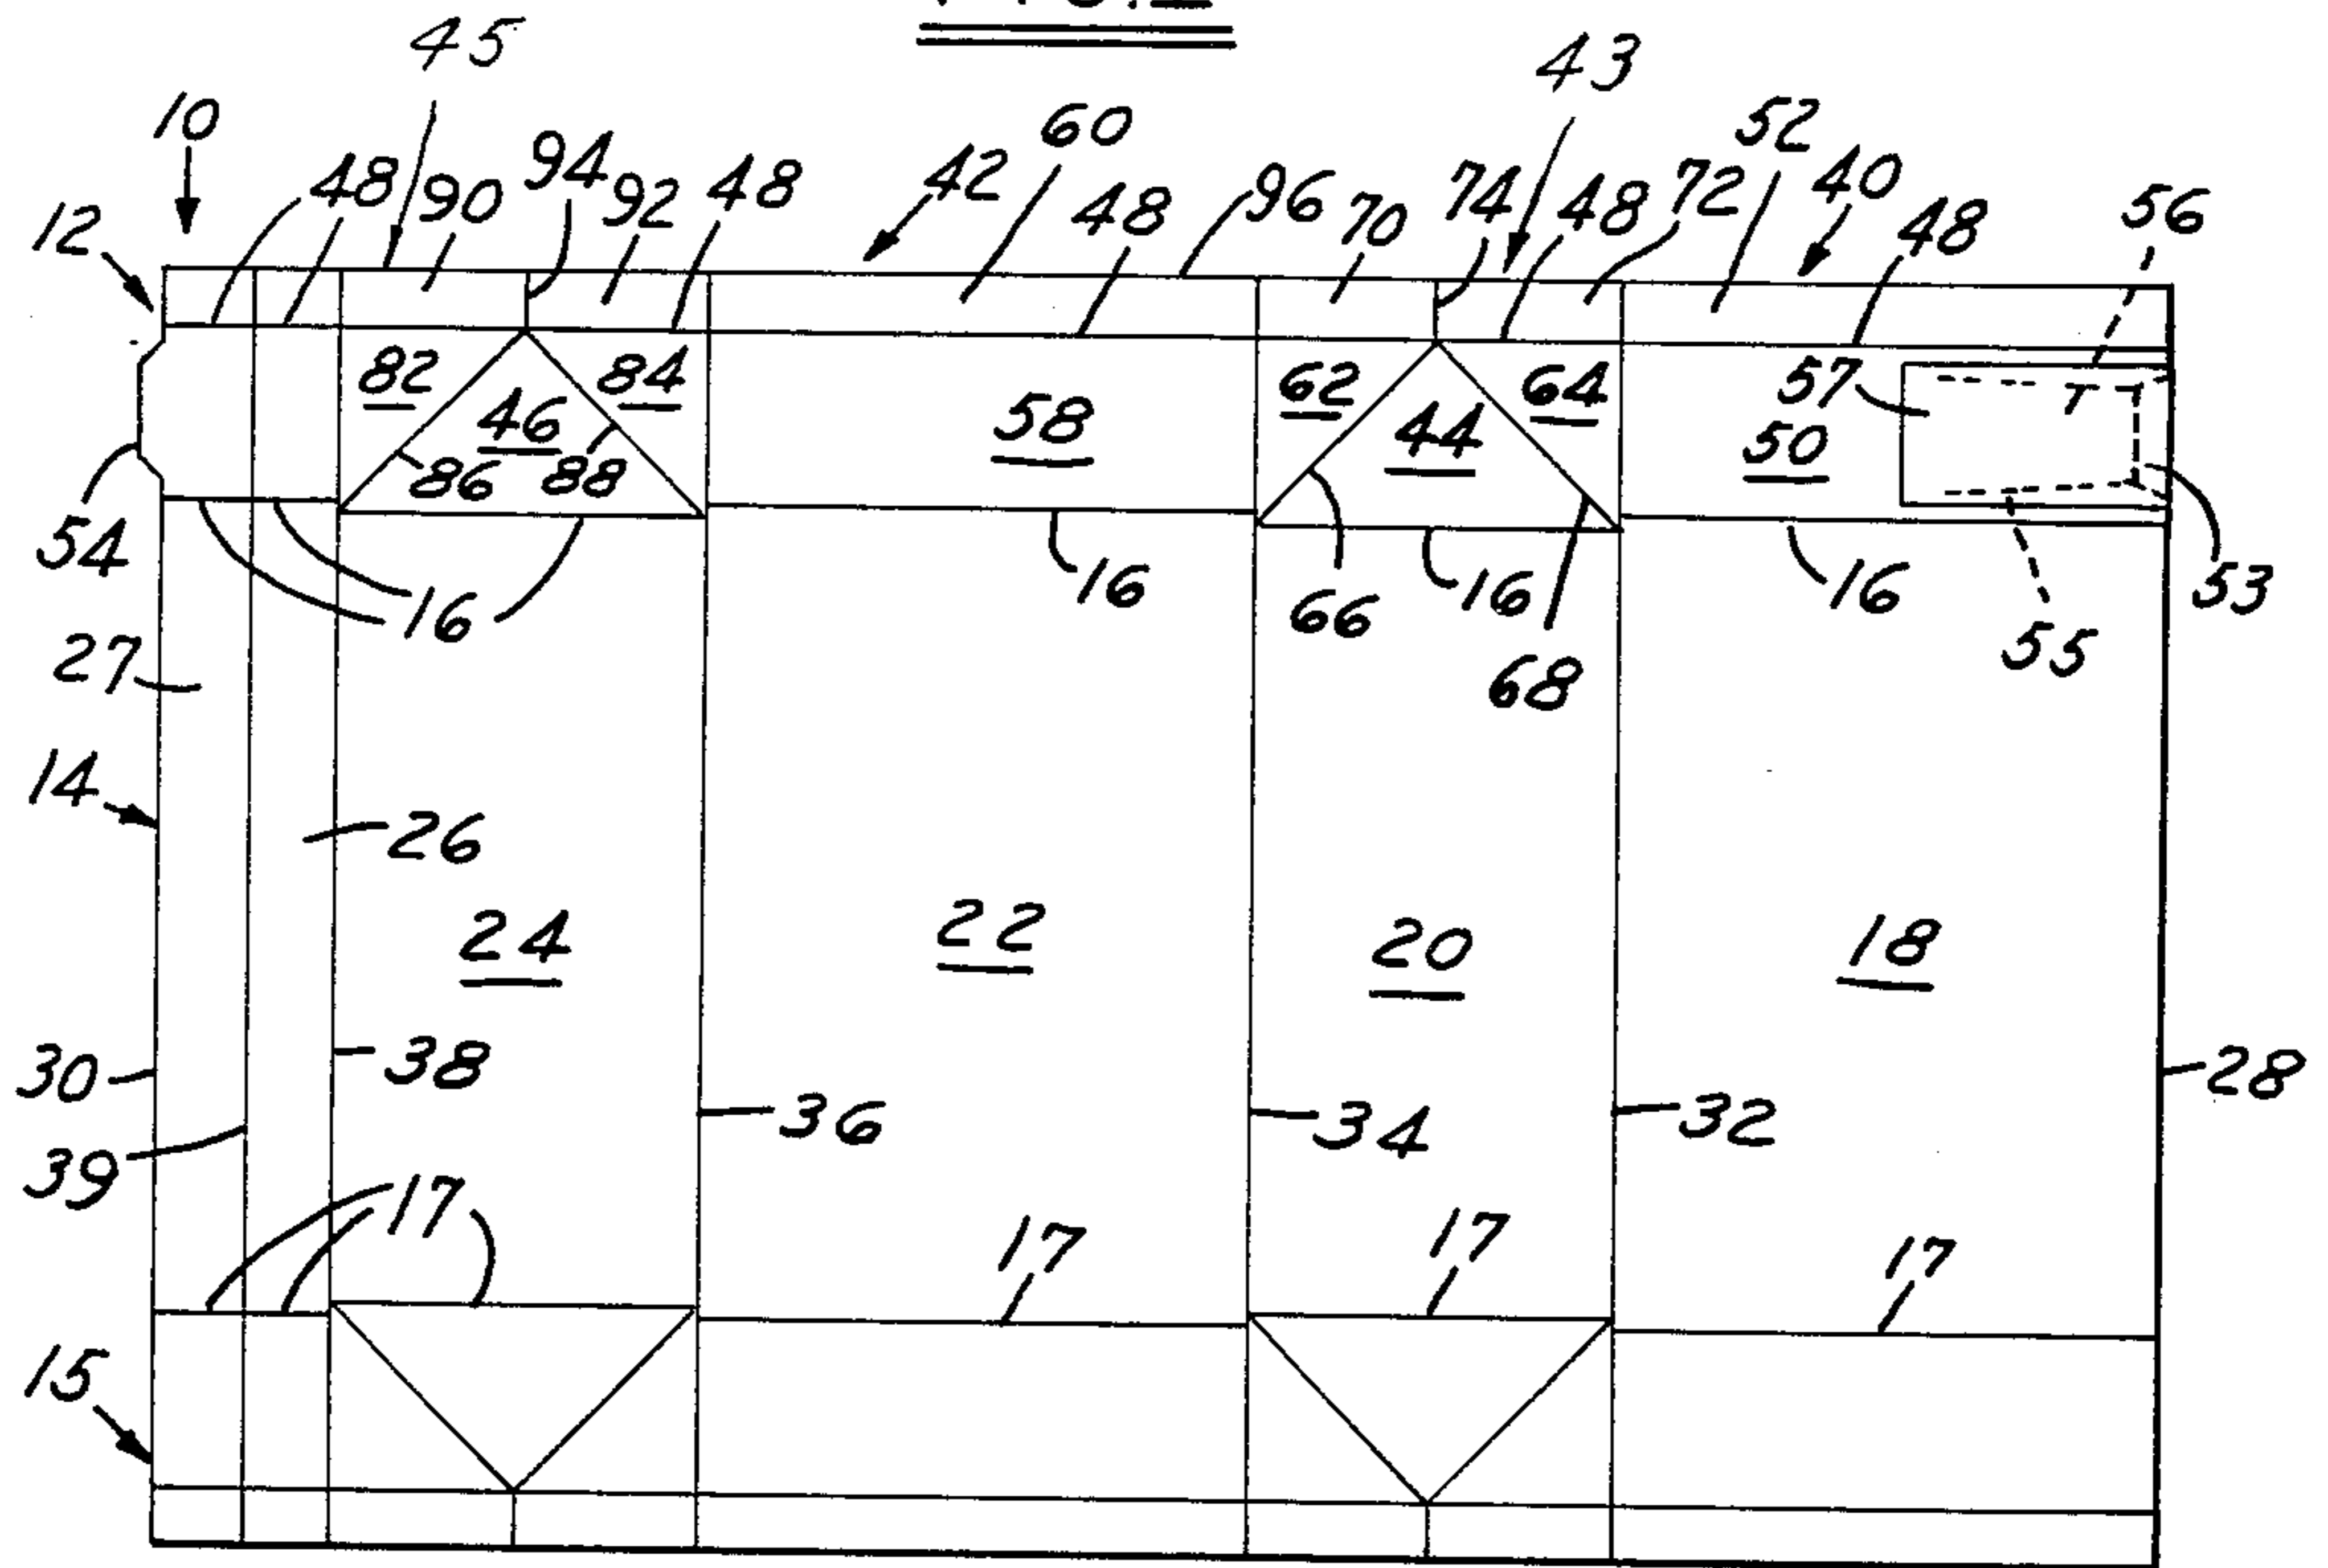 45
43
10
60
52
48
90
94
92
48
42
48
96
70
74
48
72
40
48
56
12
82
84
46
86
88
58
62
64
44
57
50
54
16
16
66
16
68
16
55
53
27
14
26
24
22
20
18
30
38
36
34
32
28
39
17
17
17
17
15